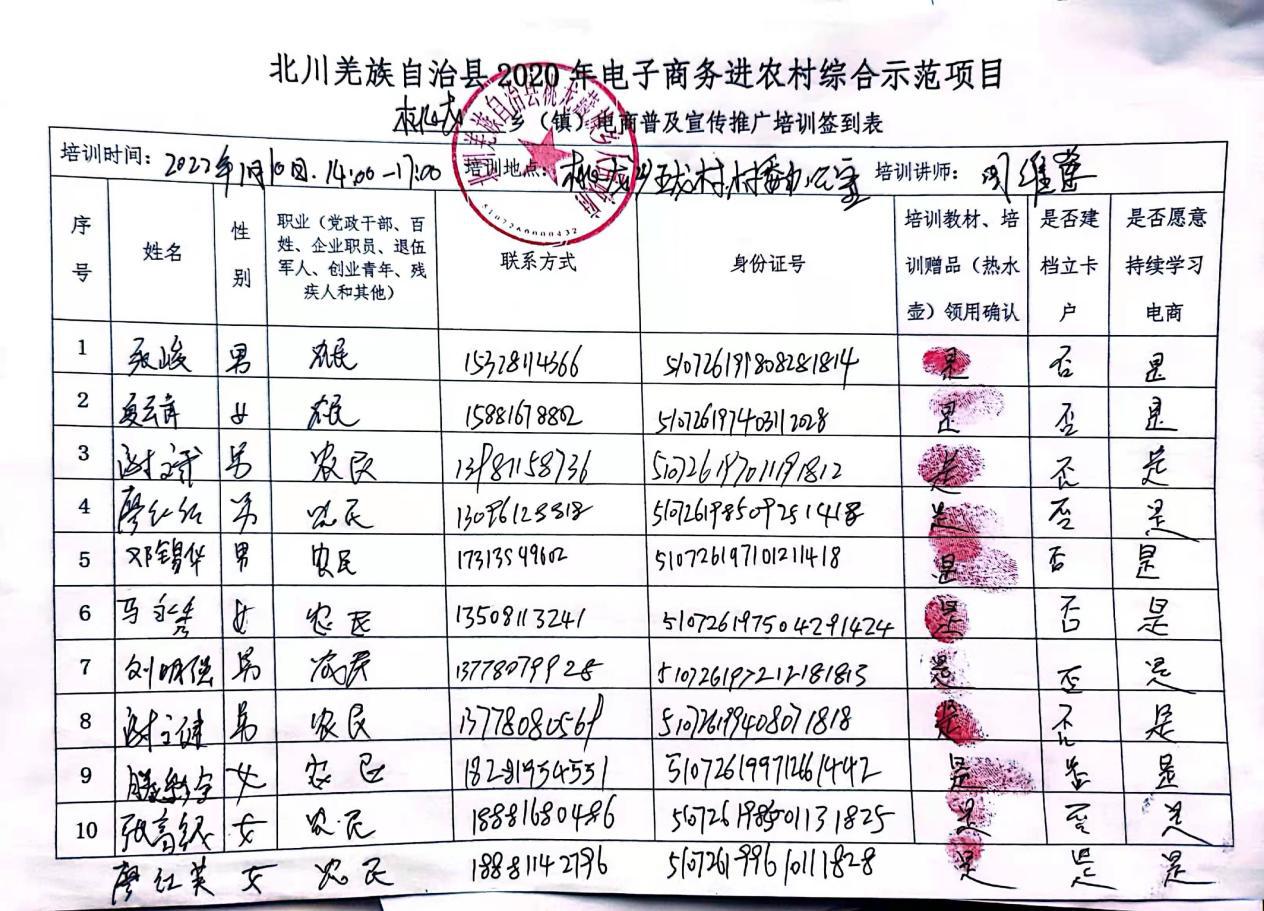 北川羌族自治县2020年电子商务进农村综合示范项目
桃龙 乡（镇）电商普及宣传推广培训签到表
培训时间：2022年1月10日.14:00-17:00 培训地点：桃龙乡 村村委办公室 培训讲师：周维
序号 姓名 性别 职业（党政干部、百姓、企业职员、退伍军人、创业青年、残疾人和其他） 联系方式 身份证号 培训教材、培训赠品（热水壶）领用确认 是否建档立卡户 是否愿意持续学习电商
1 张峻 男 农民 15328114366 是 否 是
2 女 农民 15881678802 是 否 是
3 谢文武 男 农民 13981158736 是 否 是
4 廖红 男 农民 是 否 是
5 邓锡华 男 农民 17313549602 510726197101211418 是 否 是
6 马永秀 女 农民 13508113241 510726197504291424 是 否 是
7 刘明强 男 农民 13778079928 510726197212181813 是 否 是
8 谢立健 男 农民 是 否 是
9 女 农民 18281954551 是 否 是
10 张高级 女 农民 18881680486 是 否 是
廖红英 女 农民 18881142796 是 是 是
5107260000432